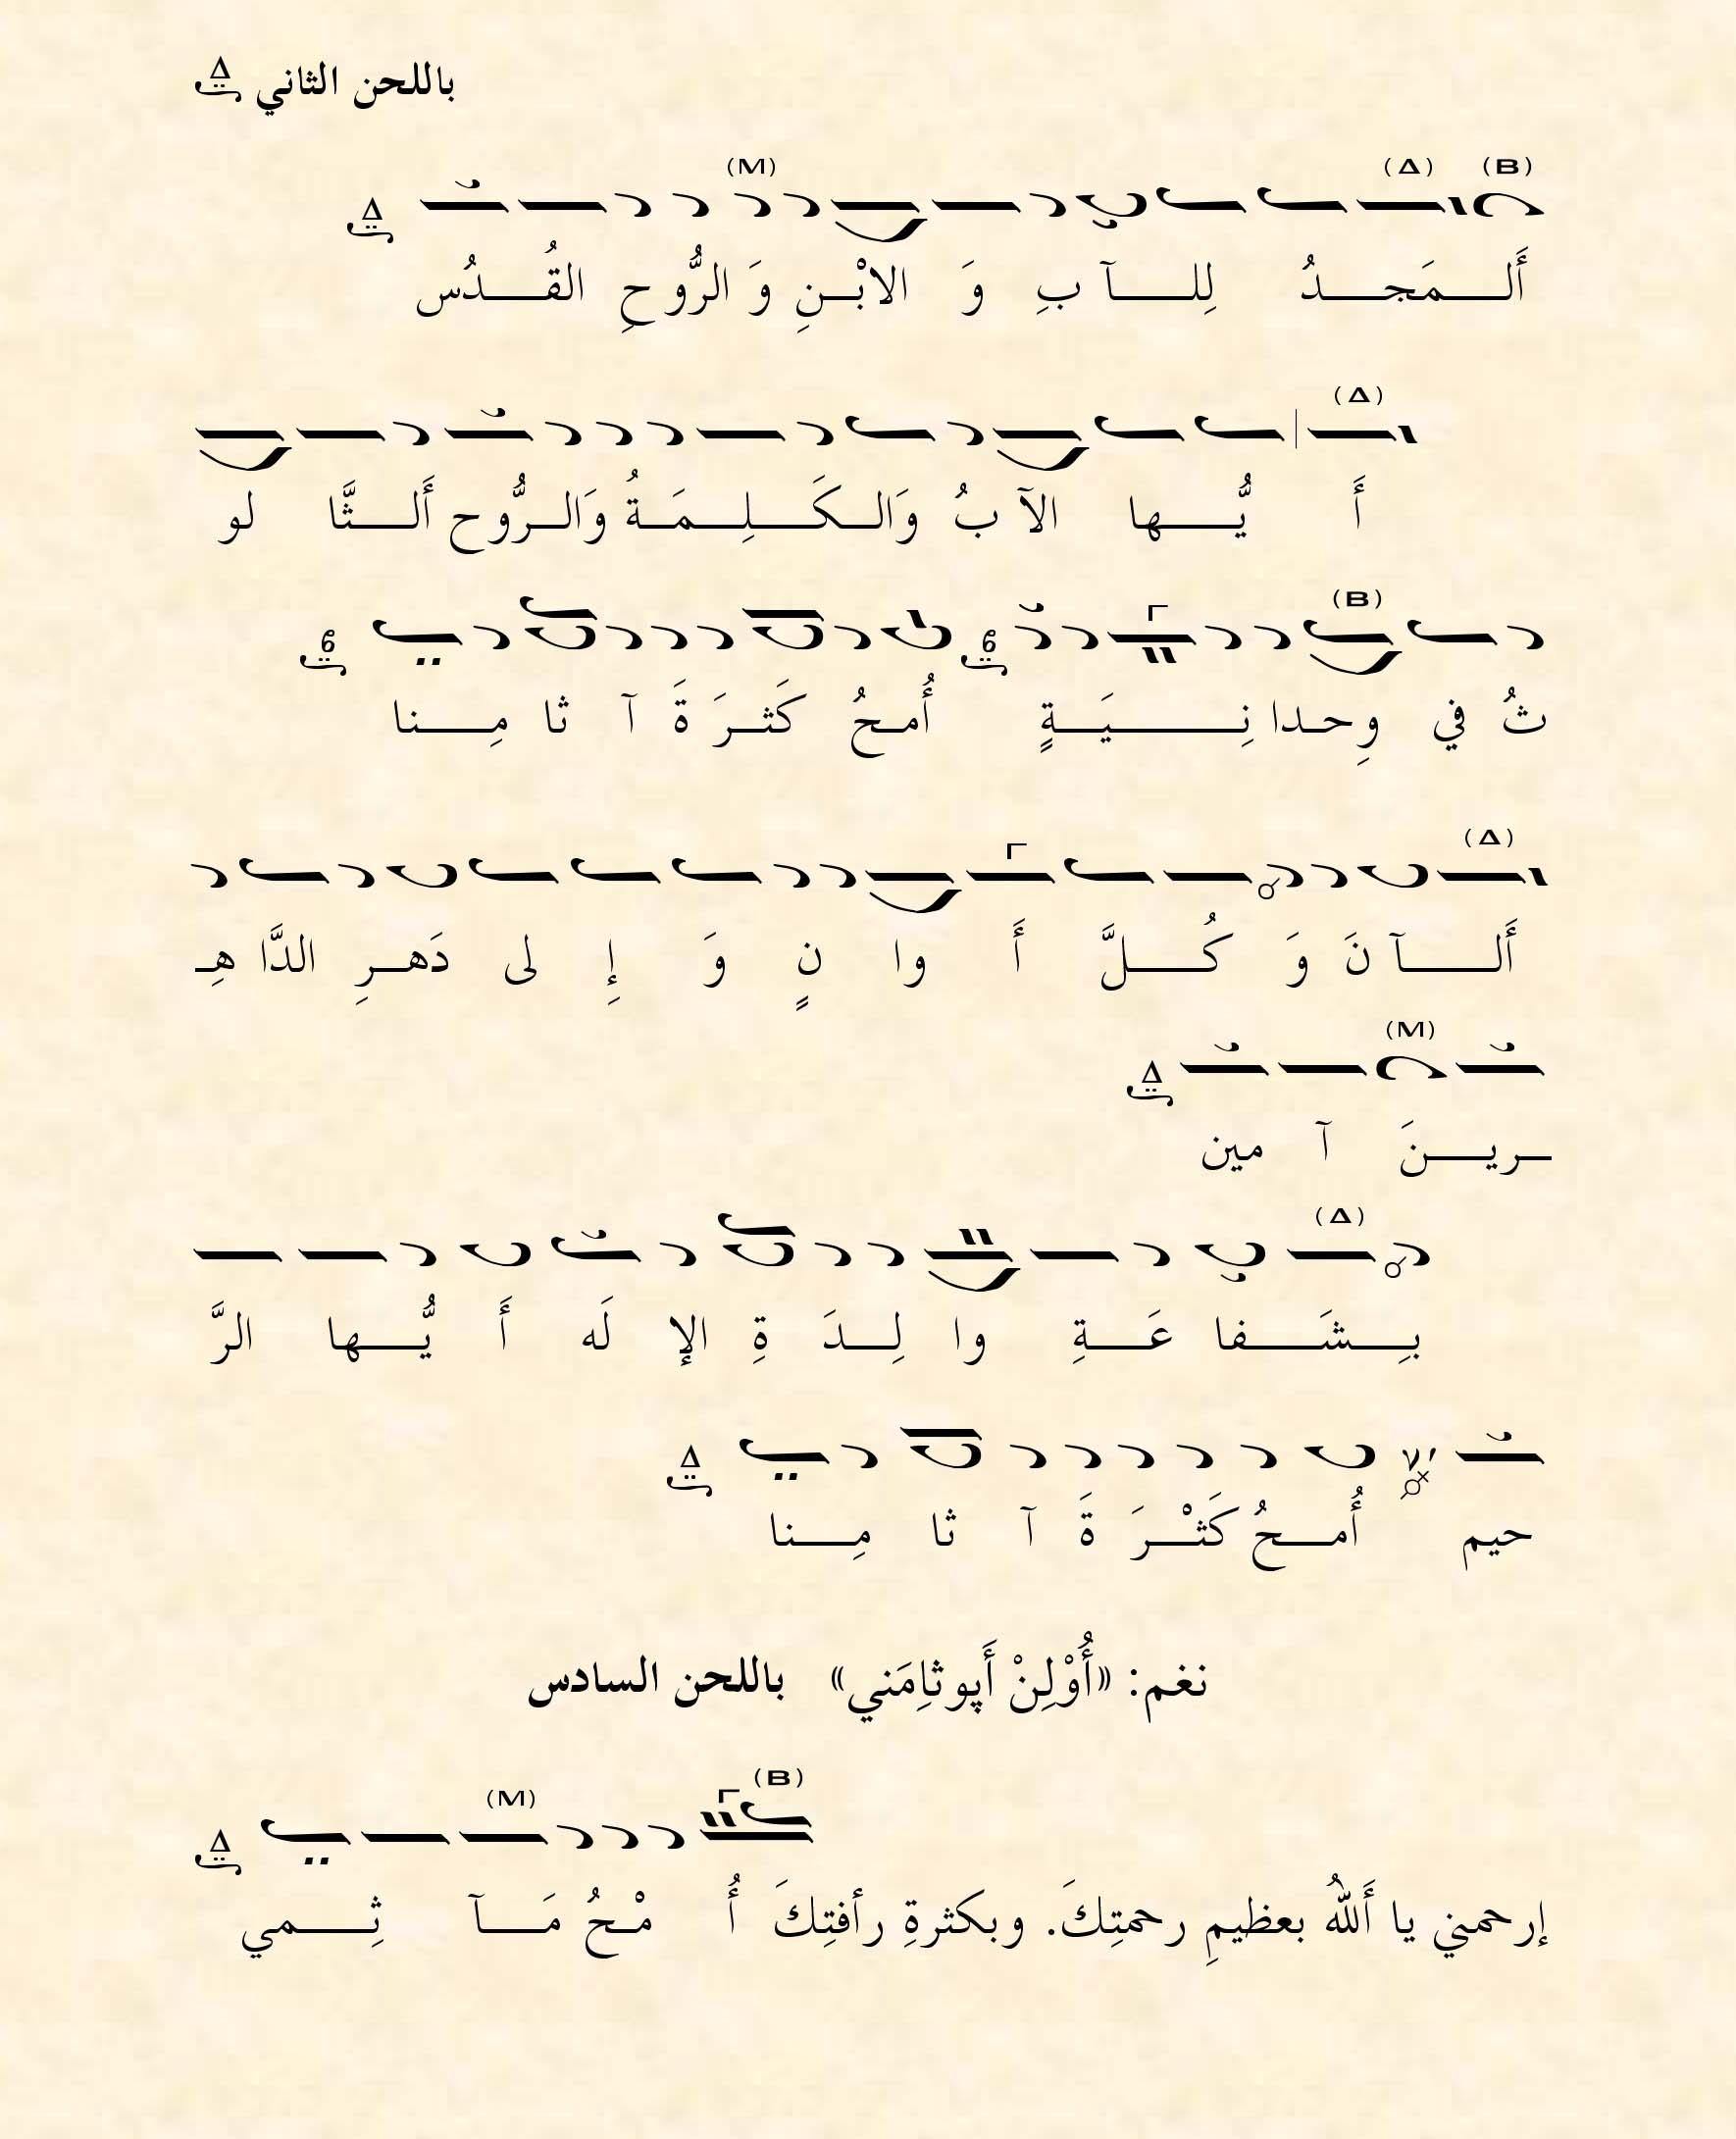 باللحن الثاني Δ
(B) (Δ) (M)
Δ
أَلـــمَجـــدُ لِلـــآ بِ وَ الابْــنِ وَ الرُّو حِ القُـــدُس
(Δ)
أَ يُّـــها الآ بُ وَالــكَـــلِـــمَــةُ وَالــرُّوح أَلـــثَّا لو
(B) Γ
ثُ في وِحـدا نِـــــيَـــةٍ أُمـحُ كَثــرَ ةَ آ ثا مِـــنا
(Δ) Γ
أَلـــآ نَ وَ كُـــلَّ أَ وا نٍ وَ إِ لى دَهــرِ الدَّا هِـ
(M)
Δ
ـريـــنَ آ مين
(Δ)
بِـــشَـــفا عَـــةِ وا لِـــدَ ةِ الإ لَه أَ يُّـــها الرَّ
Δ
حيم أُمـــحُ كَثْـــرَ ةَ آ ثا مِـــنا
نغم: «أُوْلِنْ أَپوثاِمَني» باللحن السادس
(B) Γ (M)
Δ
إرحمني يا أَللهُ بعظيمِ رحمتِكَ. وبكثرةِ رأفتِكَ أُ مْـحُ مَـــآ ثِـــمي